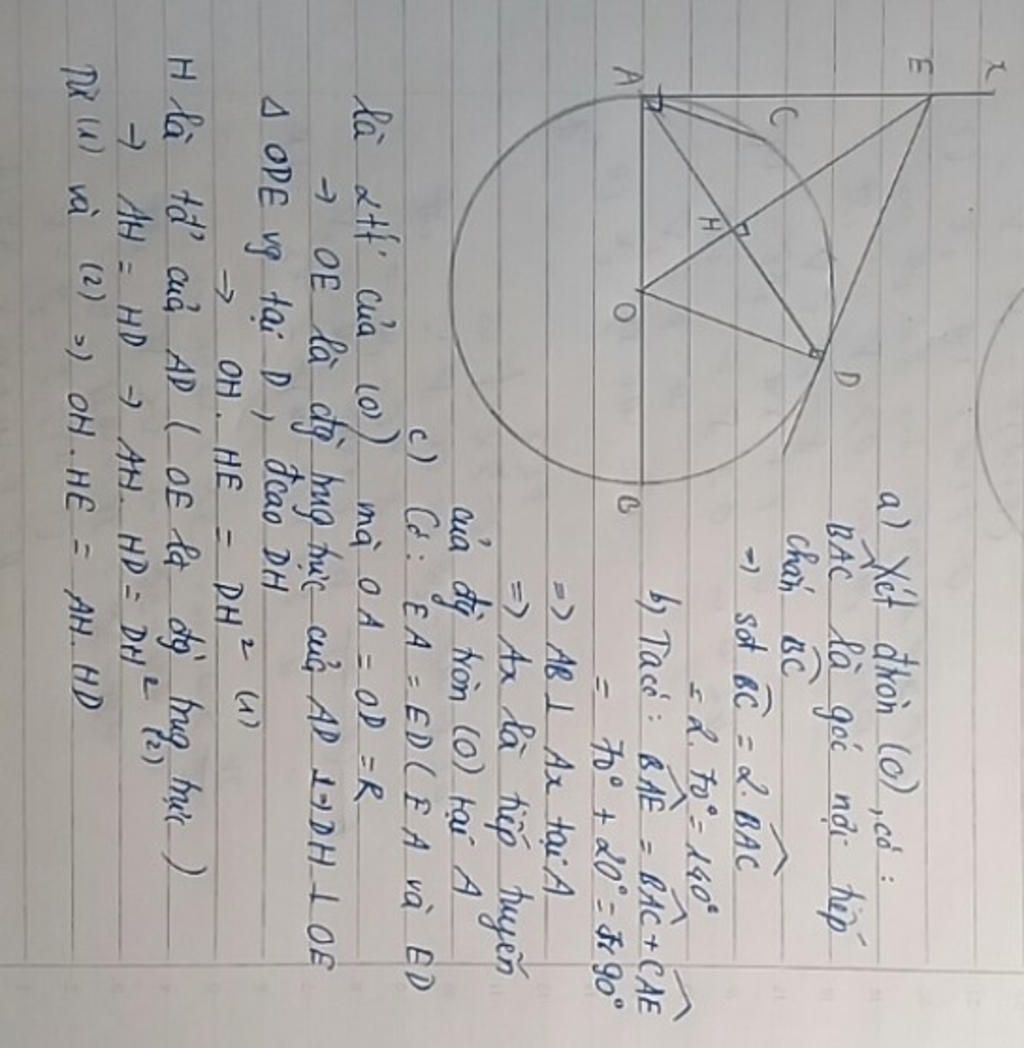 x
E
A
C
H
D
O
B
a) Xét đtròn (O), có:
BAC là góc nội tiếp
chắn BC
=> sđ BC = 2. BAC
= 2. 70° = 140°
b) Ta có: BAE = BAC + CAE
= 70° + 20° = 90°
=> AB ⊥ Ax tại A
=> Ax là tiếp tuyến
của đg tròn (O) tại A
c) Có: EA = ED (EA và ED
là 2tt' của (O)) mà OA = OD = R
→ OE là đg trug trực của AD => DH ⊥ OE
Δ ODE vg tại D, đcao DH
→ OH. HE = DH² (1)
H là tđ' của AD (OE là đg trug trực)
→ AH = HD → AH. HD = DH² (2)
Từ (1) và (2) => OH. HE = AH. HD